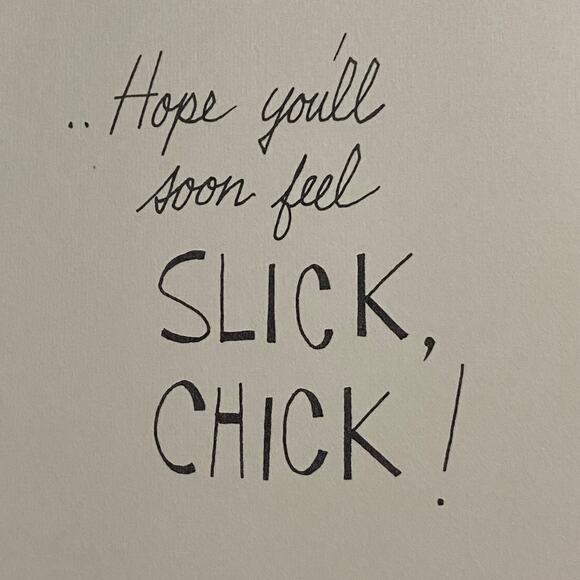 .. Hope you'll
soon feel
SLICK,
CHICK!